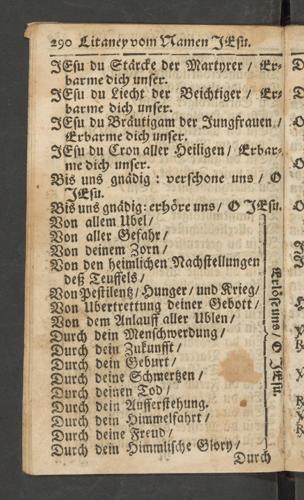 290 Litaney vom Namen JEsu.
JEsu du Stärcke der Martyrer / Er-
barme dich unser.
JEsu du Liecht der Beichtiger / Er-
barme dich unser.
JEsu du Bräutigam der Jungfrauen /
Erbarme dich unser.
JEsu du Cron aller Heiligen / Erbar-
me dich unser.
Bis uns gnädig : verschone uns / O
JEsu.
Bis uns gnädig: erhöre uns / O JEsu.
Von allem Ubel /
Von aller Gefahr /
Von deinem Zorn /
Von den heimlichen Nachstellungen
deß Teuffels /
Von Pestilentz / Hunger / und Krieg /
Von Ubertrettung deiner Gebott /
Von dem Anlauff aller Ublen /
Durch dein Menschwerdung /
Durch dein Zukunfft /
Durch dein Geburt /
Durch deine Schmertzen /
Durch deinen Tod /
Durch dein Aufferstehung.
Durch dein Himmelfahrt /
Durch deine Freud /
Durch dein Himmlische Glory /
Erlöse uns / O JEsu.
Durch